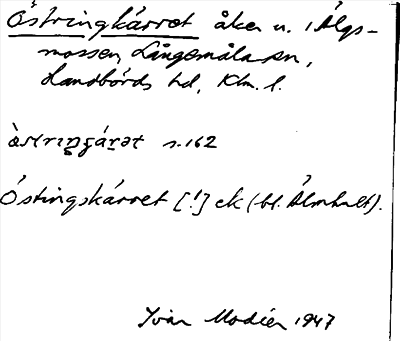 Östringkärret åker u. i Älgs-
mossen, Långemåla sn,
Handbörds hd, Klm. l.
òstrıŋɡáɽət s. 162
Östingskärret [!] ek (bl. Älmhult).
Ivar Modéer 1947